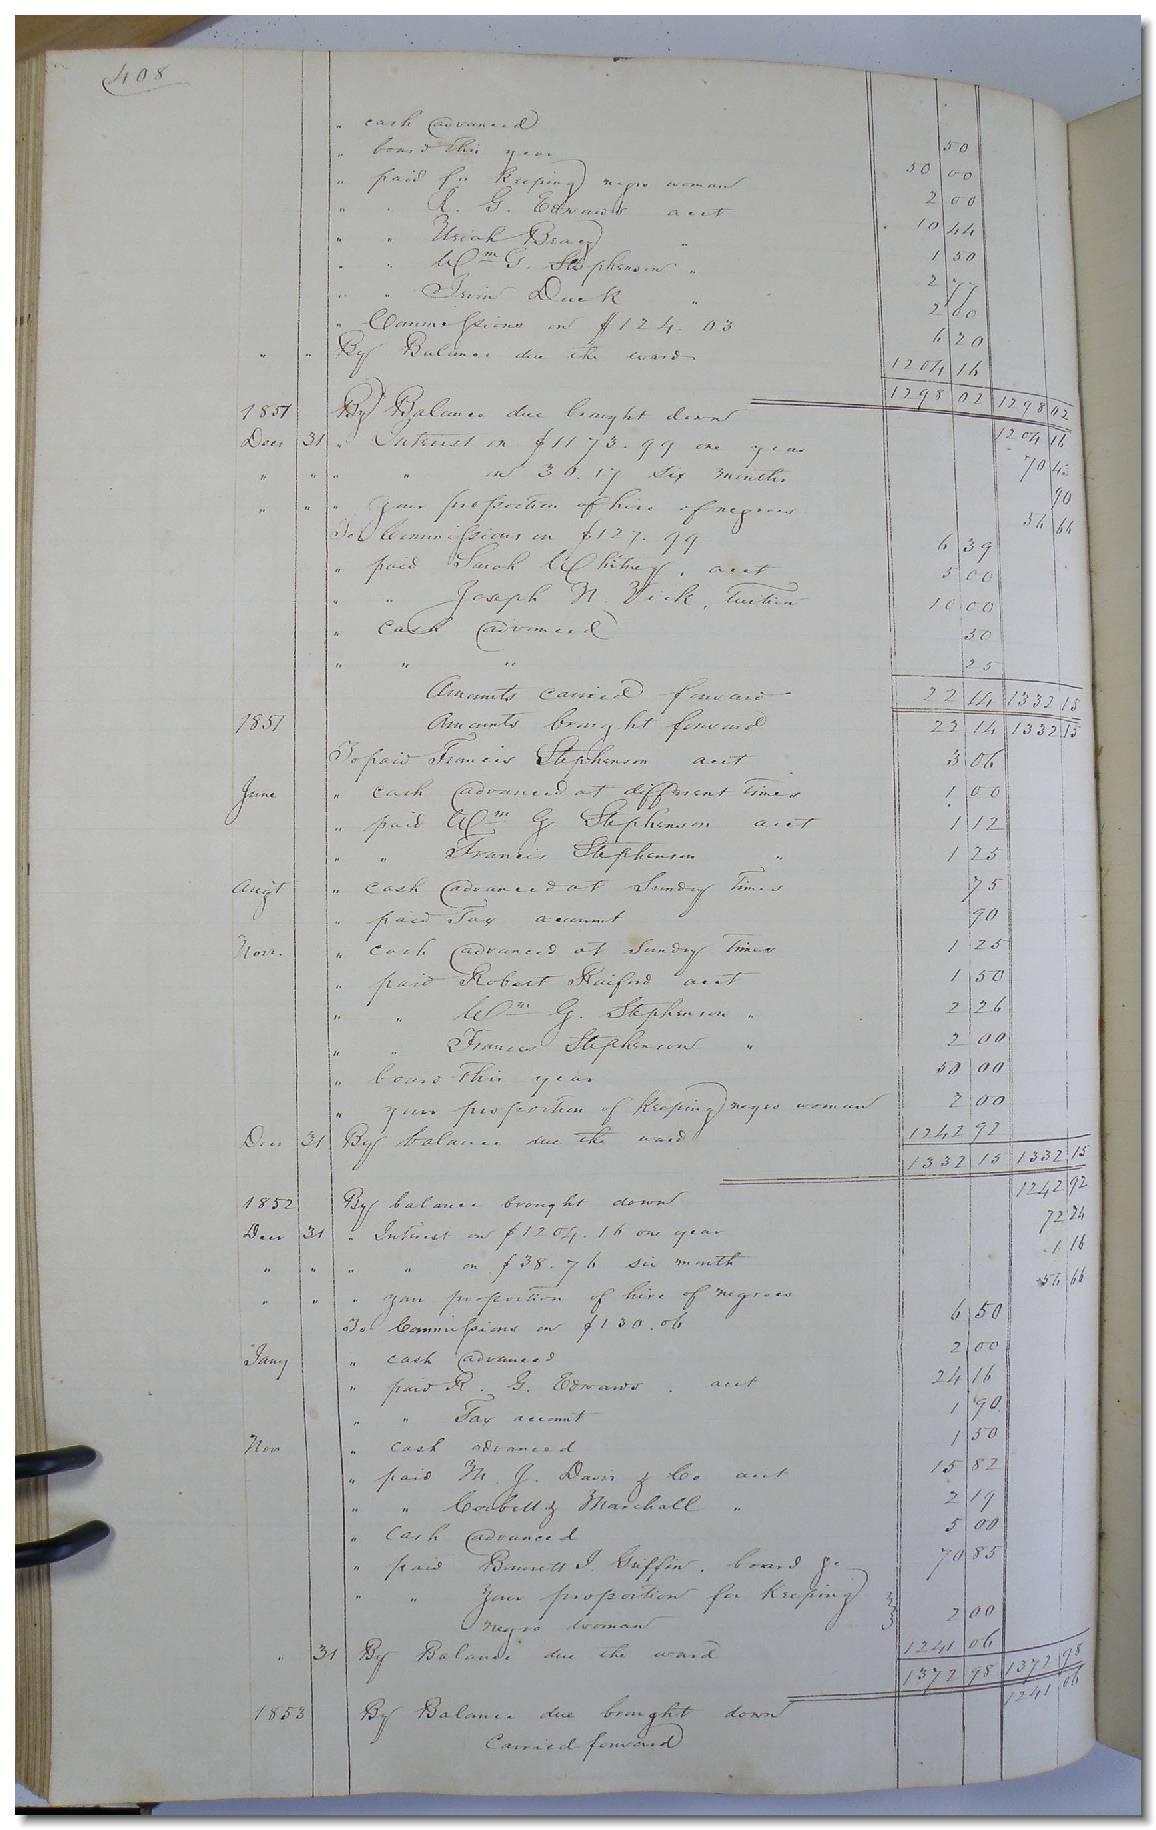 408
" cash advanced 50
" board this year 50 00
" paid for keeping negro woman 2 00
" " R. G. Edwards acct 10 44
" " Uriah Bracy " 1 50
" " Wm G. Stephenson " 2 77
" " Irvin Duck " 2 00
" Commissions on $124.03 6 20
" " By Balance due the ward 1204 16
1298 02 1298 02
1851 By Balance due brought down 1204 16
Decr 31 " Interest on $1173.99 one year 70 43
" " " " on 30.17 six months 90
" " " your proportion of hire of negroes 56 66
To Commissions on $127.99 6 39
" paid Sarah Whitney. acct 5 00
" " Joseph N. Vick, Tuition 10 00
" cash advanced 50
" " " 25
Amounts carried forward 22 14 1332 15
1851 Amounts brought forward 22 14 1332 15
To paid Francis Stephenson acct 3 06
June " cash advanced at different times 1 00
" paid Wm G Stephenson acct 1 12
" " Francis Stephenson " 1 25
Augt " cash advanced at Sundry Times 75
" paid Tax account 90
Novr. " cash advanced at Sundry Times 1 25
" paid Robert Raiford acct 1 50
" " Wm G. Stephenson " 2 26
" " Francis Stephenson " 2 00
" board this year 50 00
" your proportion of keeping negro woman 2 00
Decr 31 By balance due the ward 1242 92
1332 15 1332 15
1852 By balance brought down 1242 92
Decr 31 " Interest on $1204.16 one year 72 24
" " " " on $38.76 six month 1 16
" " " your proportion of hire of negroes 56 66
To Commissions on $130.06 6 50
Jany " cash advanced 2 00
" paid R. G. Edwards. acct 24 16
" " Tax account 1 90
Nov " cash advanced 1 50
" paid M. J. Davis & Co acct 15 82
" " Corbell & Marshall " 2 19
" cash advanced 5 00
" paid Burwell J. Griffin. board &c 70 85
" " Your proportion for keeping
negro woman 2 00
" 31 By Balance due the ward 1241 06
1372 98 1372 98
1853 By Balance due brought down 1241 06
Carried forward